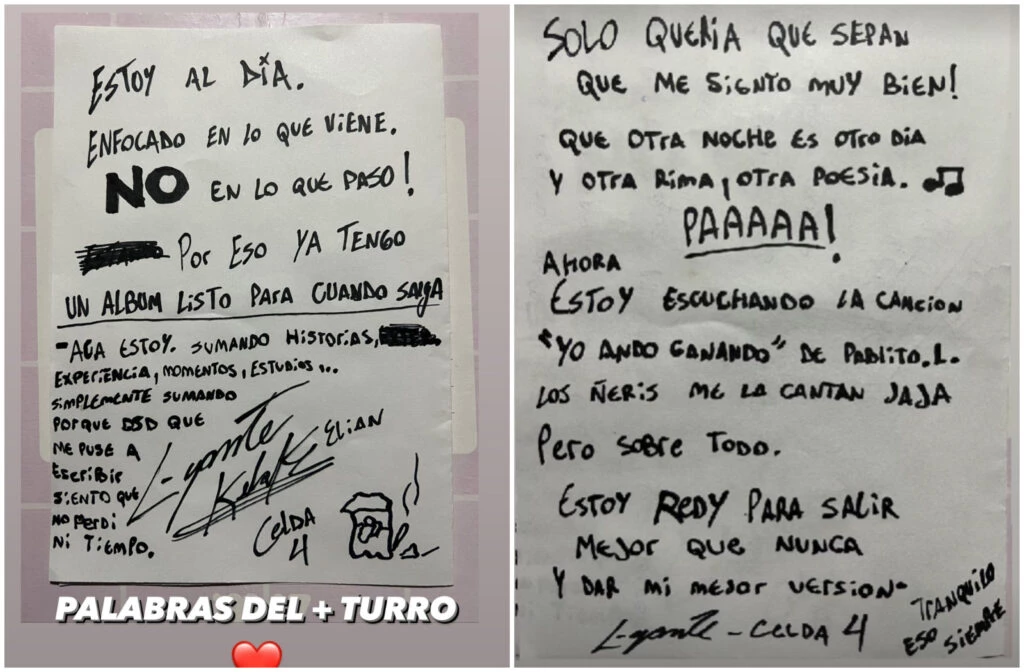 ESTOY AL DíA.
ENFOCADO EN LO QUE VIENE.
NO EN LO QUE PASO!
POR ESO YA TENGO
UN ALBUM LISTO PARA CUANDO SALGA
-ACA ESTOY. SUMANDO HISTORIAS,
EXPERIENCIA, MOMENTOS, ESTUDIOS...
SIMPLEMENTE SUMANDO
PORQUE DSD QUE
ME PUSE A
ESCRIBIR
SIENTO QUE
NO PERDI
NI TIEMPO.
L-gante
Keloke
ELIAN
CELDA
4
PALABRAS DEL + TURRO
SOLO QUERIA QUE SEPAN
QUE ME SIGNTO MUY BIEN!
QUE OTRA NOCHE ES OTRO DIA
Y OTRA RIMA, OTRA POESIA.
PAAAAA!
AHORA
ESTOY ESCUCHANDO LA CANCION
"YO ANDO GANANDO" DE PABLITO.L.
LOS ÑERIS ME LA CANTAN JAJA
PERO SOBRE TODO.
ESTOY REDY PARA SALIR
MEJOR QUE NUNCA
Y DAR MI MEJOR VERSION-
L-gante - CELDA 4
TRANQUILO
ESO SIEMPRE